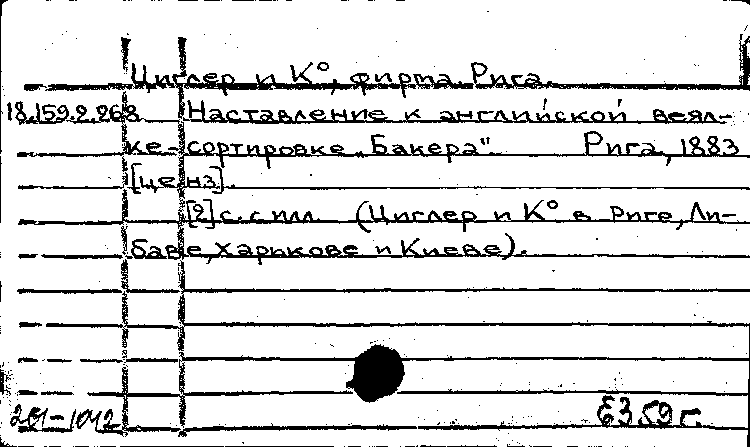 Циглер и К°, фирма. Рига.
18.159.2.268 Наставление к английской веял-
ке-сортировке „Бакера" Рига, 1883
[ценз].
[2] с. с илл. (Циглер и К° в Риге, Ли-
баве, Харькове и Киеве).
Е3.59 г.